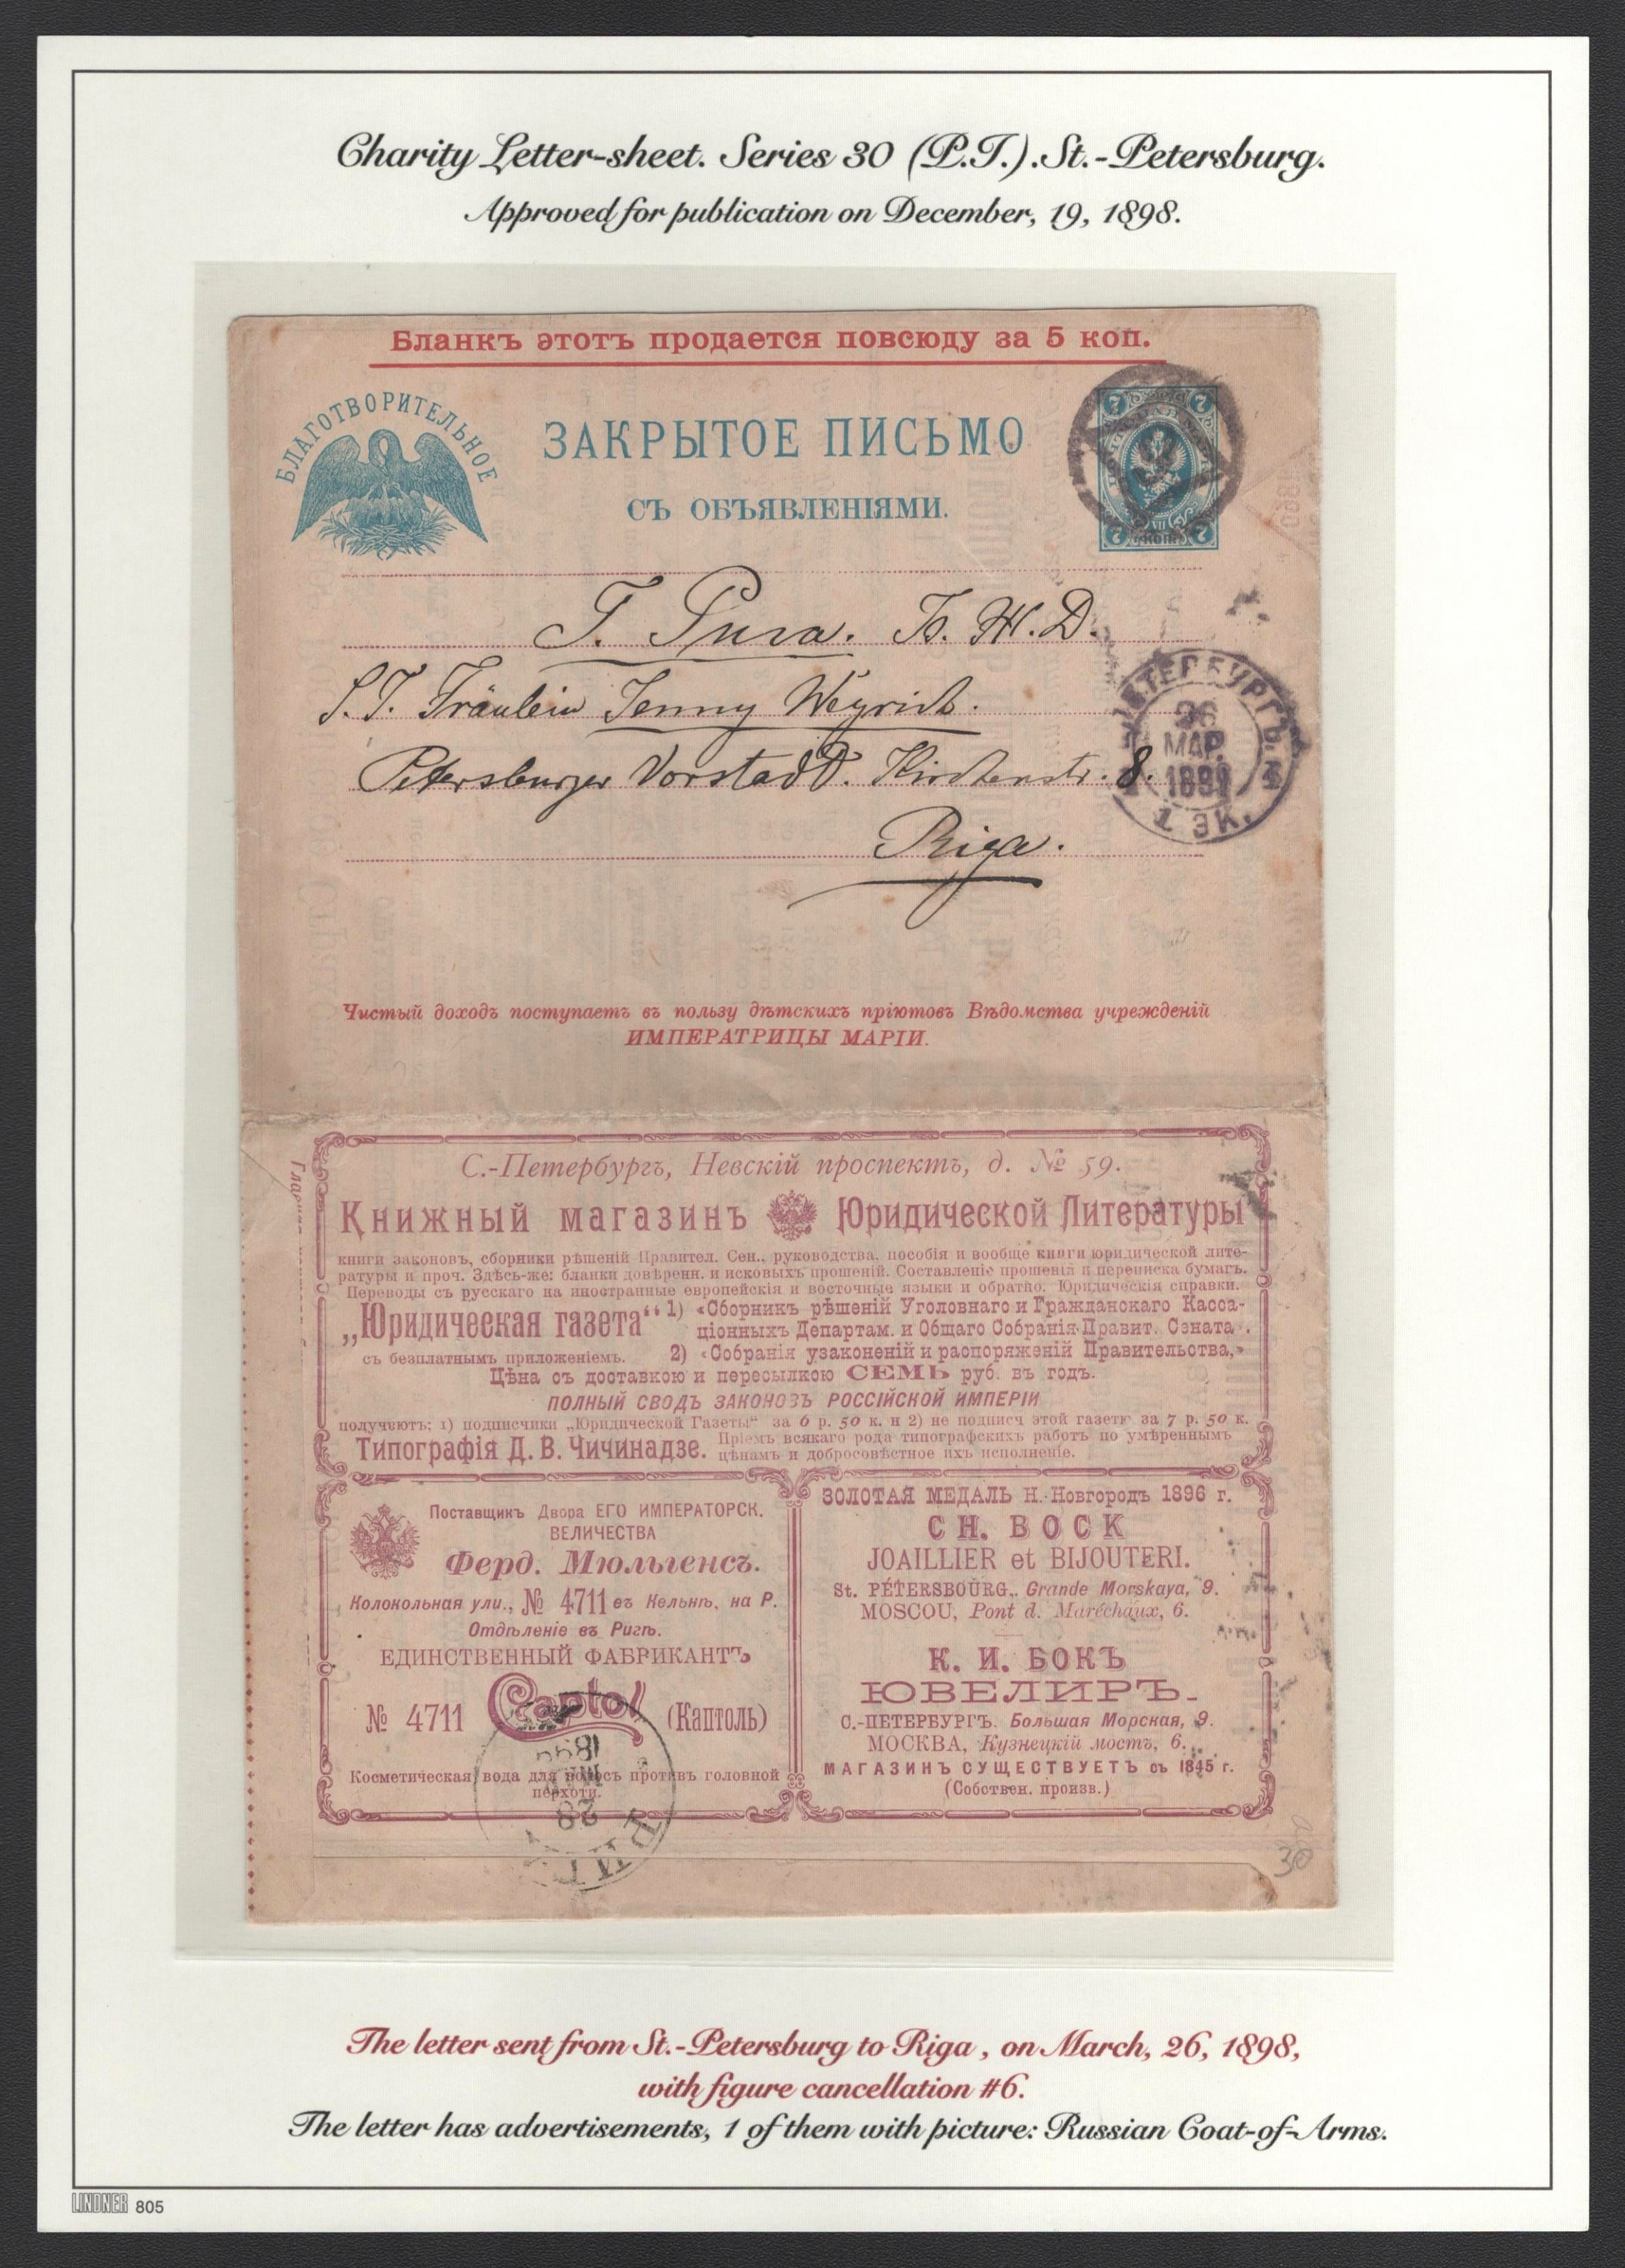 Charity Letter-sheet. Series 30 (P.T.). St.-Petersburg.
Approved for publication on December, 19, 1898.
Бланкъ этотъ продается повсюду за 5 коп.
БЛАГОТВОРИТЕЛЬНОЕ
ЗАКРЫТОЕ ПИСЬМО
СЪ ОБЪЯВЛЕНІЯМИ.
7 7
7 7
Г. Рига.
S.T. Fräulein Jenny Weyrich.
Petersburger Vorstadt. Kirchenstr. 8.
26
МАР.
Riga.
Чистый доходъ поступаетъ въ пользу дѣтскихъ пріютовъ Вѣдомства учрежденій
ИМПЕРАТРИЦЫ МАРІИ.
С.-Петербургъ, Невскій проспектъ, д. № 59.
Книжный магазинъ Юридической Литературы
книги законовъ, сборники рѣшеній Правител. Сен., руководства, пособія и вообще книги юридической лите-
ратуры и проч. Здѣсь-же: бланки довѣренн. и исковыхъ прошеній. Составленіе прошенія и переписка бумагъ.
Переводы съ русскаго на иностранные европейскія и восточные языки и обратно. Юридическія справки.
„Юридическая газета“ 1) «Сборникъ рѣшеній Уголовнаго и Гражданскаго Касса-
ціонныхъ Департам. и Общаго Собранія Правит. Сената».
съ безплатнымъ приложеніемъ. 2) «Собранія узаконеній и распоряженій Правительства,»
Цѣна съ доставкою и пересылкою СЕМЬ руб. въ годъ.
ПОЛНЫЙ СВОДЪ ЗАКОНОВЪ РОССІЙСКОЙ ИМПЕРІИ
получаютъ: 1) подписчики „Юридической Газеты“ за 6 р. 50 к. и 2) не подписч этой газеты за 7 р. 50 к.
Типографія Д. В. Чичинадзе. Пріемъ всякаго рода типографскихъ работъ по умѣреннымъ
цѣнамъ и добросовѣстное ихъ исполненіе.
Поставщикъ Двора ЕГО ИМПЕРАТОРСК.
ВЕЛИЧЕСТВА
Ферд. Мюльгенсъ.
Колокольная ули., № 4711 въ Кельнѣ, на Р.
Отдѣленіе въ Ригѣ.
ЕДИНСТВЕННЫЙ ФАБРИКАНТЪ
№ 4711 Captol (Каптоль)
Косметическая вода для волосъ противъ головной
перхоти.
1899
28
РИГА
ЗОЛОТАЯ МЕДАЛЬ Н.-Новгородъ 1896 г.
CH. BOCK
JOAILLIER et BIJOUTERI.
St. PÉTERSBOURG,. Grande Morskaya, 9.
MOSCOU, Pont d. Maréchaux, 6.
К. И. БОКЪ
ЮВЕЛИРЪ.
С.-ПЕТЕРБУРГЪ. Большая Морская, 9.
МОСКВА, Кузнецкій мостъ, 6.
МАГАЗИНЪ СУЩЕСТВУЕТЪ съ 1845 г.
(Собствен. произв.)
30
The letter sent from St.-Petersburg to Riga, on March, 26, 1898,
with figure cancellation #6.
The letter has advertisements, 1 of them with picture: Russian Coat-of-Arms.
LINDNER 805